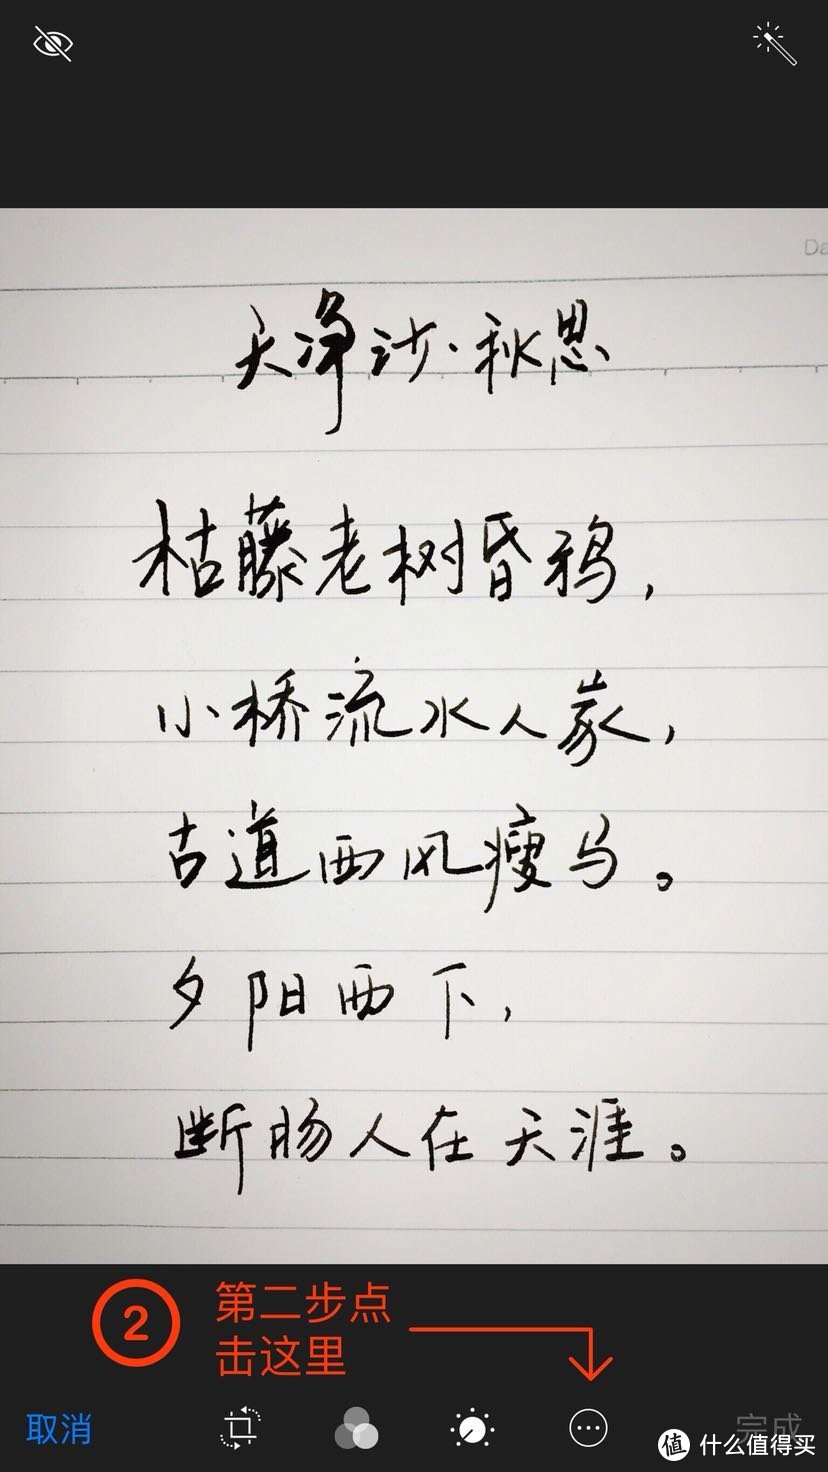 Da
天净沙·秋思
枯藤老树昏鸦，
小桥流水人家，
古道西风瘦马。
夕阳西下，
断肠人在天涯。
2
第二步点
击这里
取消
完成
值 什么值得买